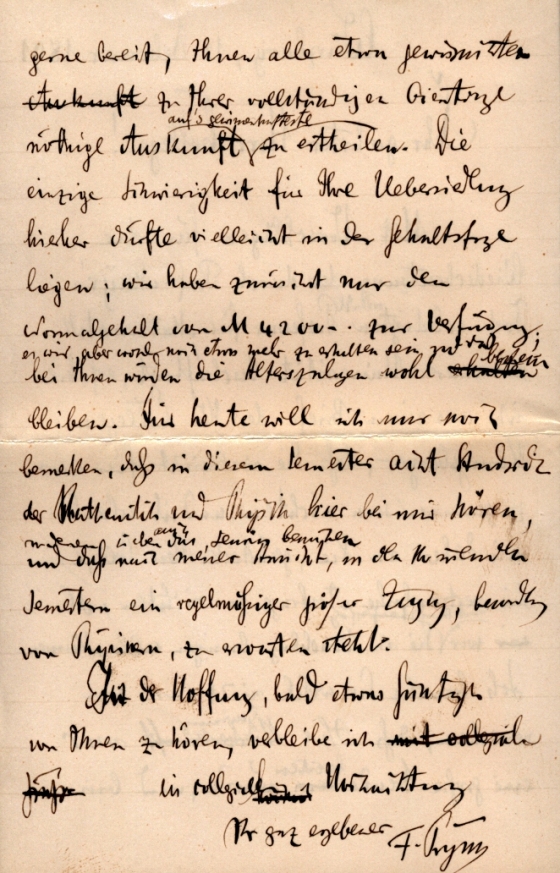 gerne bereit, Ihnen alle etwa gewünschten
Auskunft zu Ihrer vollständigen
nöthige Auskunft zu ertheilen. Die
einzige Schwierigkeit für Ihre Uebersiedlung
hierher dürfte vielleicht in der Gehaltsfrage
liegen; wir haben zunächst nur den
Normalgehalt von M 4200.-. zur Verfügung;
es wird aber noch etwas mehr zu erhalten sein,
bei Ihnen würden die Alterszulagen wohl
bleiben. Für heute will ich nur noch
bemerken, daß in diesem Semester acht
der Mathematik und Physik hier bei mir hören,
und daß nach meiner Ansicht, in den kommenden
Semestern ein regelmäßiger großer Zugang,
von Physikern, zu erwarten steht.
In der Hoffnung, bald etwas Günstiges
von Ihnen zu hören, verbleibe ich mit
in Hochachtung
Ihr ganz ergebener F. Prym